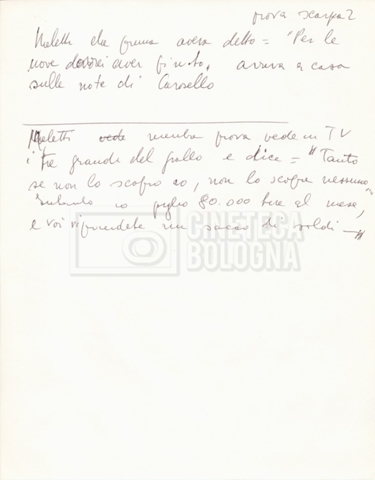 prova scarpa 2
Meletti che prima aveva detto = "Per le
nove dovrei aver finito, arriva a casa
sulle note di Carosello
Meletti vede mentre prova vede in TV
i tre grandi del giallo e dice = "Tanto
se non lo scopro io, non lo scopre nessuno
io piglio 80.000 lire al mese,
e voi riprendete un sacco di soldi —"
CINETECA
BOLOGNA